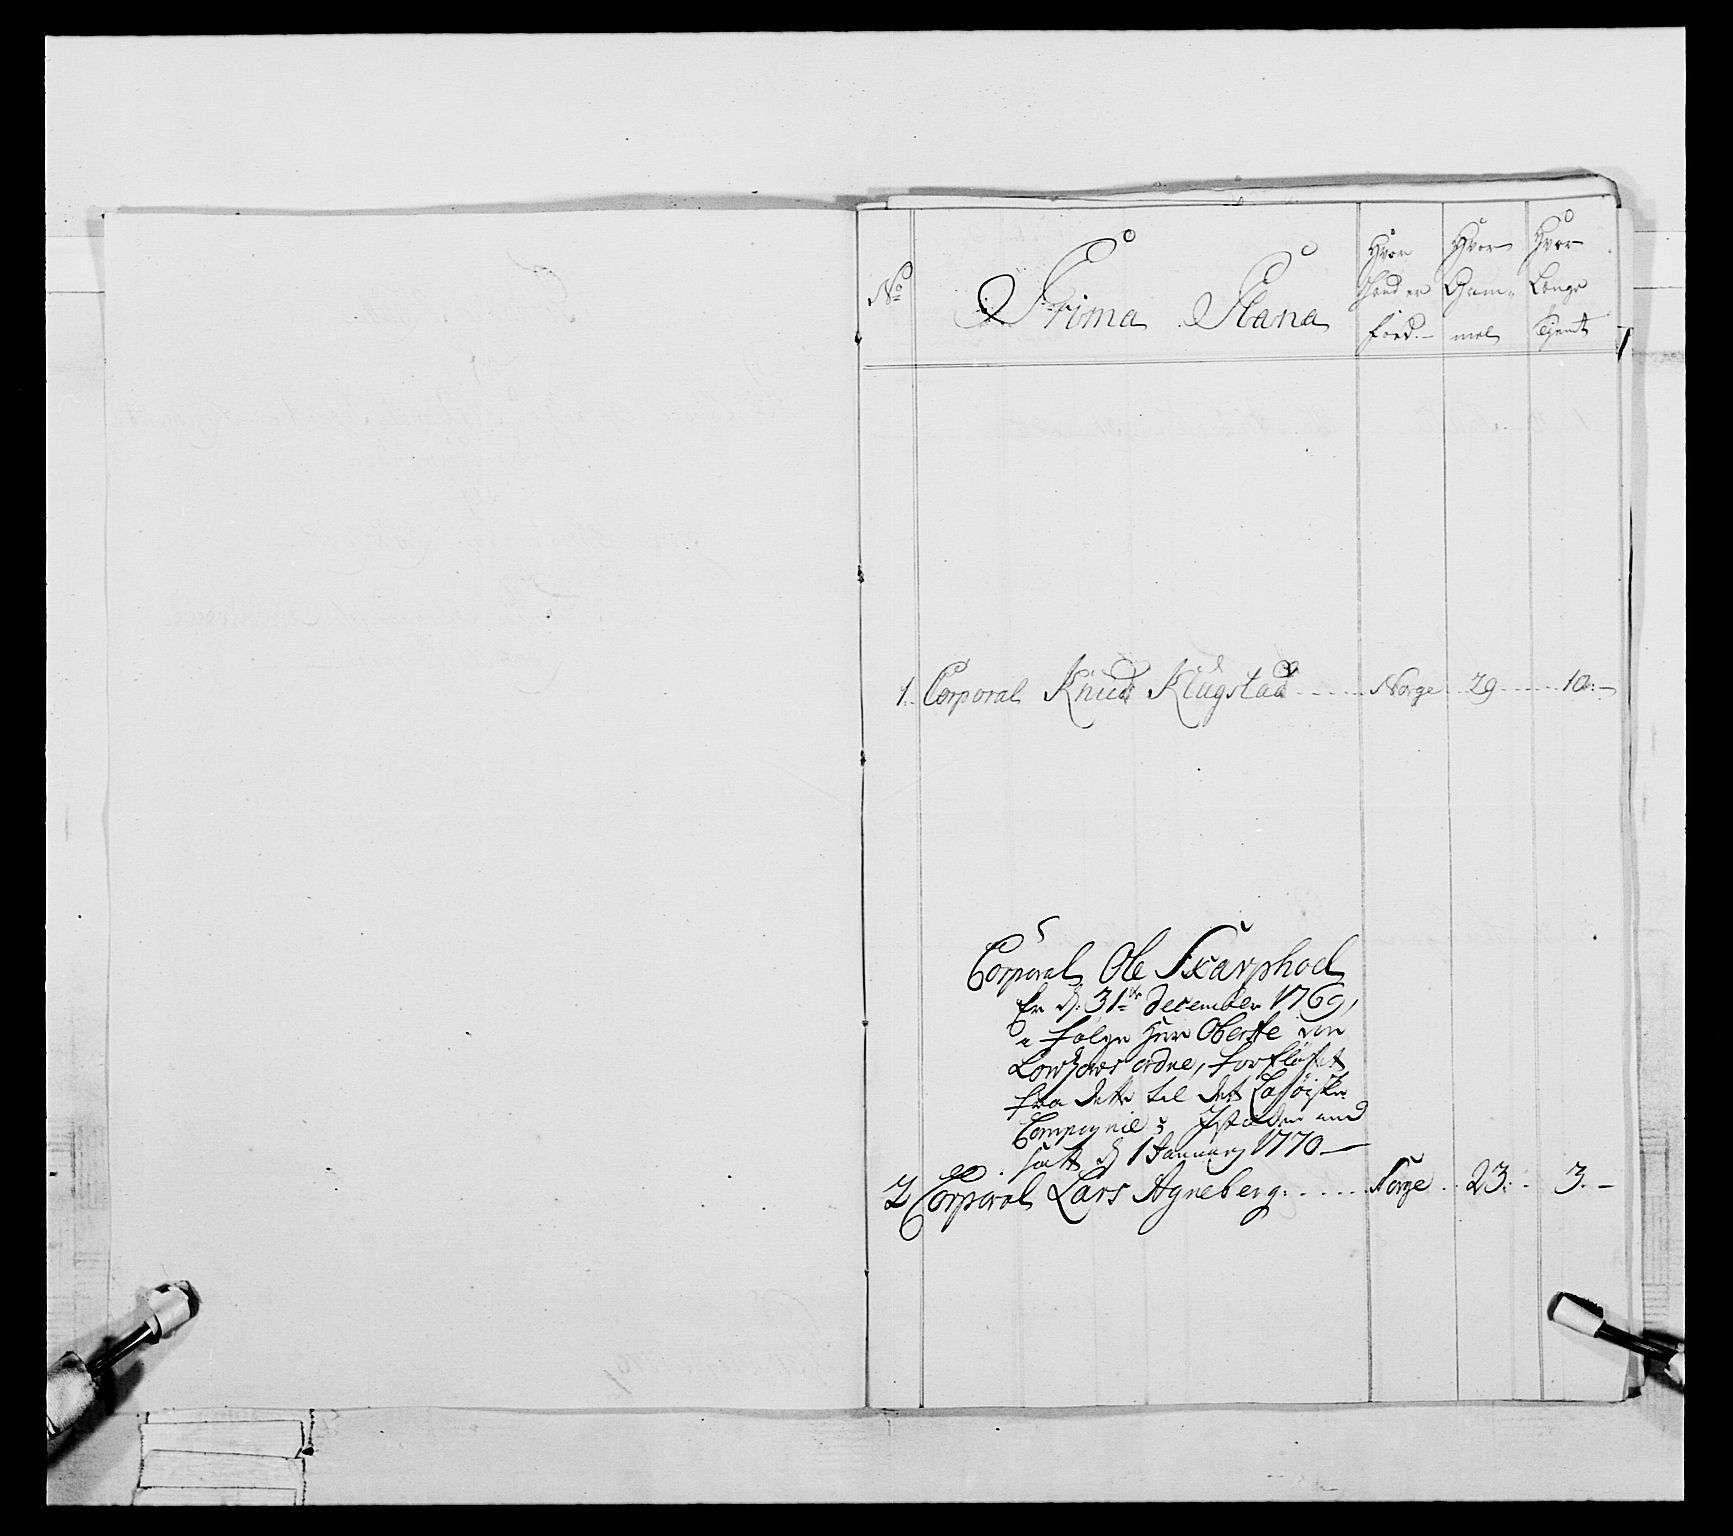 No
Prima Plana
Hvor
hand er
föed.-
Hvor
Gam-
mel
Hvor
Længe
Tjent
1. Corporal Knud Klugstad Norge 29 10.-
Corporal Ole Skarphoel
Er d. 31te December 1769,
i følge Herr Oberste von
ordre, forfløtet
fra dette til det
Compagnie; Istæden and
satt d 1 January 1770-
2 Corporal Lars Agneberg Norge 23. 3.-